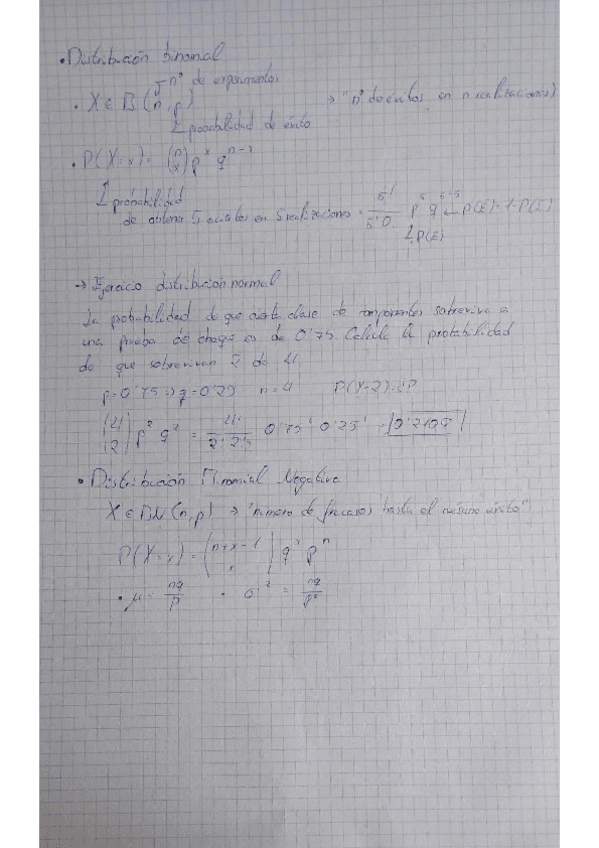 • Distribución binomial
nº de experimentos
• X ∈ B(n, p) → "nº de éxitos en n realizaciones)
↳ probabilidad de éxito
• P(X=x) = (n x) p^x q^(n-x)
↳ probabilidad
de obtener 5 en 5 realizaciones = 5!/5!0! p^5 q^(5-5) ← P(E)=1-P(E)
↳ P(E)
→ Ejercicio distribución normal
La probabilidad de que cierta clase de componentes sobreviva a
una prueba de choque es de 0'75. Calcule la probabilidad
de que sobrevivan 2 de 4.
p=0'75 => q=0'25 n=4 P(X=2)=¿?
(4 2) p² q² = 4!/2!·2! 0'75² 0'25² = 0'2109
• Distribución Binomial Negativa
X ∈ BN(n,p) → "número de fracasos hasta el n éxito"
P(X=x) = (n+x-1 x) q^x p^n
• μ = nq/p • σ² = nq/p²